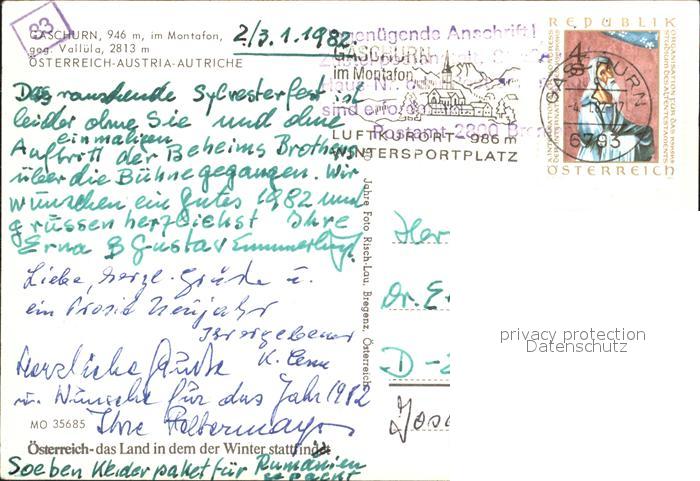 83
GASCHURN, 946 m, im Montafon,
geg. Vallüla, 2813 m
ÖSTERREICH-AUSTRIA-AUTRICHE
2/3.1.1982.
Das rauschende Sylvesterfest ist
leider ohne Sie und ohne
einmaligen
Auftritt der Beheims Brothers
über die Bühne gegangen. Wir
wünschen ein gutes 1982 und
grüssen herzlichst Ihre
Erna & Gustav
Liebe, herzl. Grüße u.
ein Prosit Neujahr
Ihr ergebener
K.
Herzliche Grüße
u. Wünsche für das Jahr 1982
Ihre
MO 35685
Österreich-das Land in dem der Winter stattfindet
Soeben Kleiderpaket für Rumänien
gepackt
Jahre Foto Risch-Lau, Bregenz, Österreich
genügende Anschrift!
Haus Nr.
sind
Postamt 2800
GASCHURN
im Montafon
LUFTKURORT-986 m
WINTERSPORTPLATZ
REPUBLIK
4
GASCHURN
6793
ÖSTERREICH
Her
Dr. E
D-2
privacy protection
Datenschutz